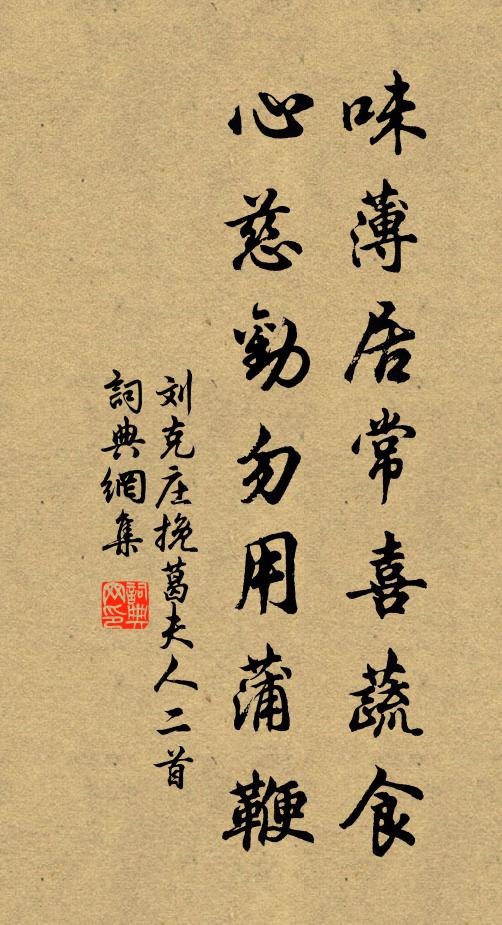 味薄居常喜蔬食
心慈勸勿用蒲鞭
刘克庄挽葛夫人二首
詞典網集
詞典网印